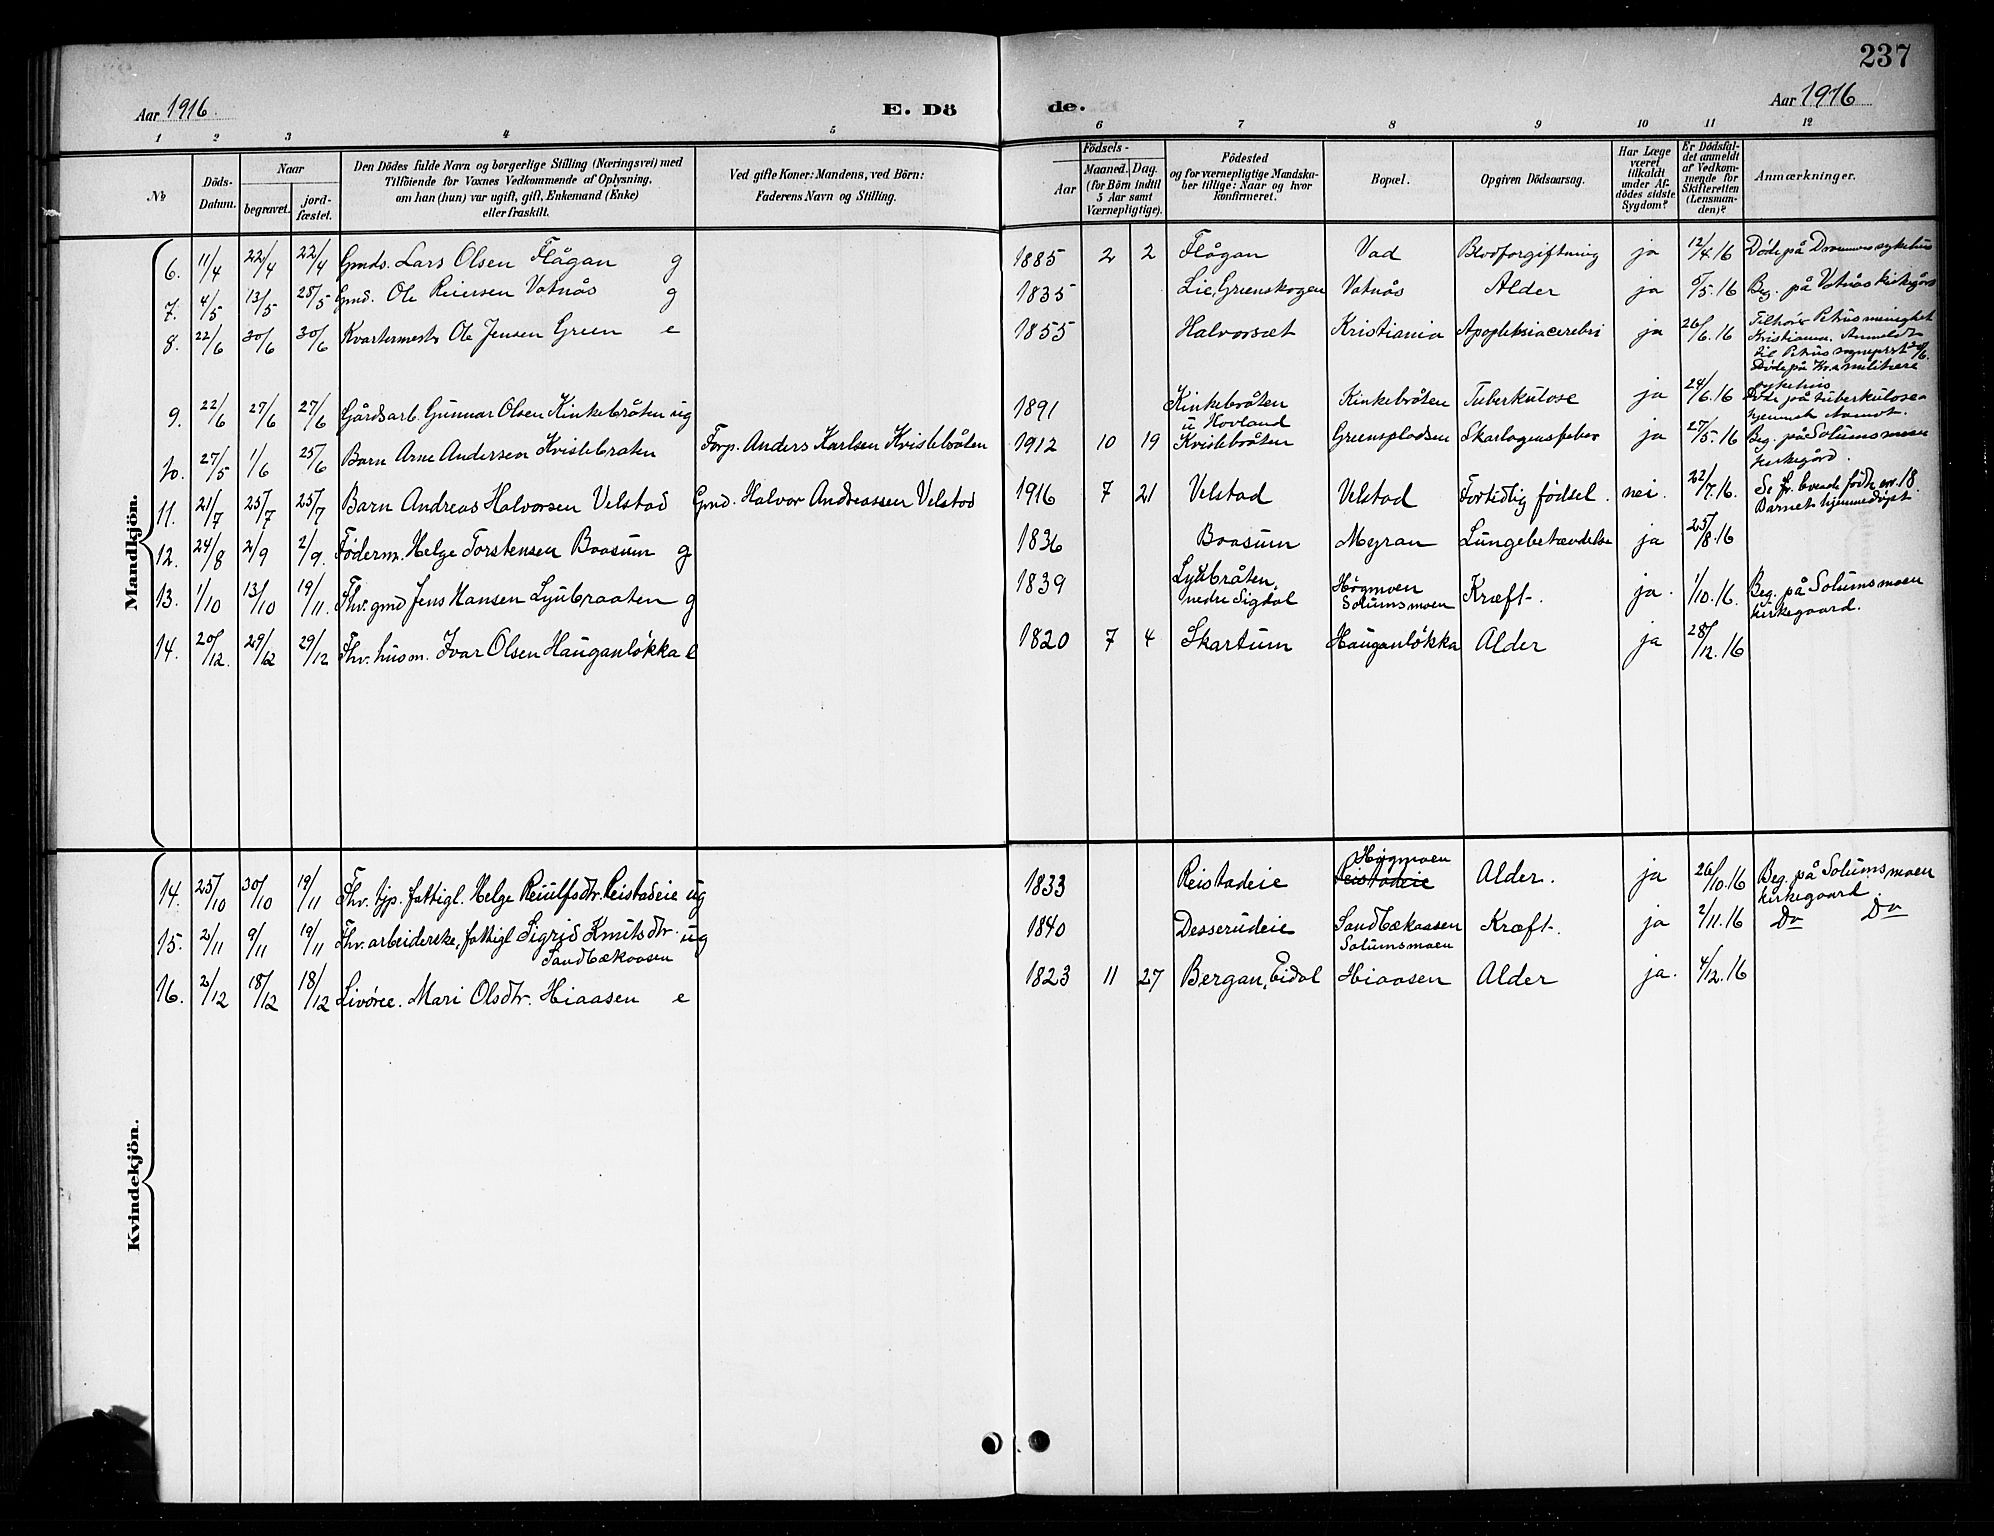 237
Aar 1916.
E. Dö
de.
Aar 1916
1 2 3 4 5 6 7 8 9 10 11 12
No
Döds-
Datum.
Naar
begravet.
jord-
fæstet.
Den Dödes fulde Navn og borgerlige Stilling (Næringsvei) med
Tilföiende for Voxnes Vedkommende af Oplysning,
om han (hun) var ugift, gift, Enkemand (Enke)
eller fraskilt.
Ved gifte Koner: Mandens, ved Börn:
Faderens Navn og Stilling.
Födsels-
Aar
Maaned. Dag.
(for Börn indtil
5 Aar samt
Værnepligtige).
Födested
og for værnepligtige Mandska-
ber tillige: Naar og hvor
konfirmeret.
Bopæl.
Opgiven Dödsaarsag.
Har Læge
været
tilkaldt
under Af-
dödes sidste
Sygdom?
Er Dödsfal-
det anmeldt
af Vedkom-
mende for
Skifteretten
(Lensman-
den)?
Anmærkninger.
Mandkjön.
6. 11/4 22/4 22/4 Gmds. Lars Olsen Flågan g 1885 2 2 Flågan Vad Blodforgiftning ja 12/4.16 Døde på Drammens sykehus
7. 4/5 13/5 28/5 Gmd. Ole Reiersen Vatnås g 1835 Lie, Grenskogen Vatnås Alder ja 5/5.16 Beg. på Vatnås kirkegård
8. 22/6 30/6 30/6 Kvartermestr Ole Jensen Green e 1855 Halvorsæt Kristiania Apopleksia cerebri ja 26/6.16 Tilhør Petrus menighet
Kristiania. Anmeldt
til Petrus sogneprst
Døde på Kr.a militære
sykehus
9. 22/6 27/6 27/6 Gårdsarb. Gunnar Olsen Kinkebråten ug 1891 Kinkebråten
u Hovland Kinkebråten Tuberkulose ja 24/6.16 Døde på tuberkulose
hjemmet Aamot.
10. 27/5 1/6 25/6 Barn Arne Andersen Kvislebråten Forp. Anders Karlsen Kvislebråten 1912 10 19 Kvislebråten Greenspladsen Skarlagensfeber ja 27/5.16 Beg. på Solumsmoen
kirkegård.
11. 21/7 25/7 25/7 Barn Andreas Halvorsen Velstad Gmd. Halvor Andreassen Velstad 1916 7 21 Velstad Velstad Fortidlig fødsel. nei. 22/7.16. Se fr. levende fødte nr. 18
Barnet hjemmedøpt.
12. 24/8 2/9 2/9. Føderm. Helge Torstensen Braasum g 1836 Braasum Myran Lungebetændelse ja 25/8.16
13. 1/10 13/10 19/11. Fhv. gmd Jens Hansen Lyubraaten g 1839 Lyubråten,
nedre Sigdal Høgmoen
Solumsmoen Kræft. ja. 1/10.16. Beg. på Solumsmoen
kirkegaard.
14. 20/12. 29/12 29/12 Fhv. husm. Ivar Olsen Hauganløkka e 1820 7 4 Skartum Hauganløkka Alder ja 28/12.16
Kvindekjön.
14. 25/10 30/10 19/11 Fhv. tjp. fattigl. Helge Reiulfsdtr. Reistadeie ug 1833 Reistadeie Høgmoen
Reistadeie Alder. ja 26/10.16 Beg. på Solumsmoen
kirkegaard.
15. 2/11 9/11 19/11 Fhv. arbeiderske, fattigl Sigrid Knutsdtr. ug
Sandbækaasen 1840 Desserudeie Sandbækaasen
Solumsmoen Kræft. ja 2/11.16 Do Do
16. 2/12 18/12 18/12 Livøree. Mari Olsdtr. Hiaasen e 1823 11 27 Bergan, Eidal Hiaasen Alder ja. 4/12.16